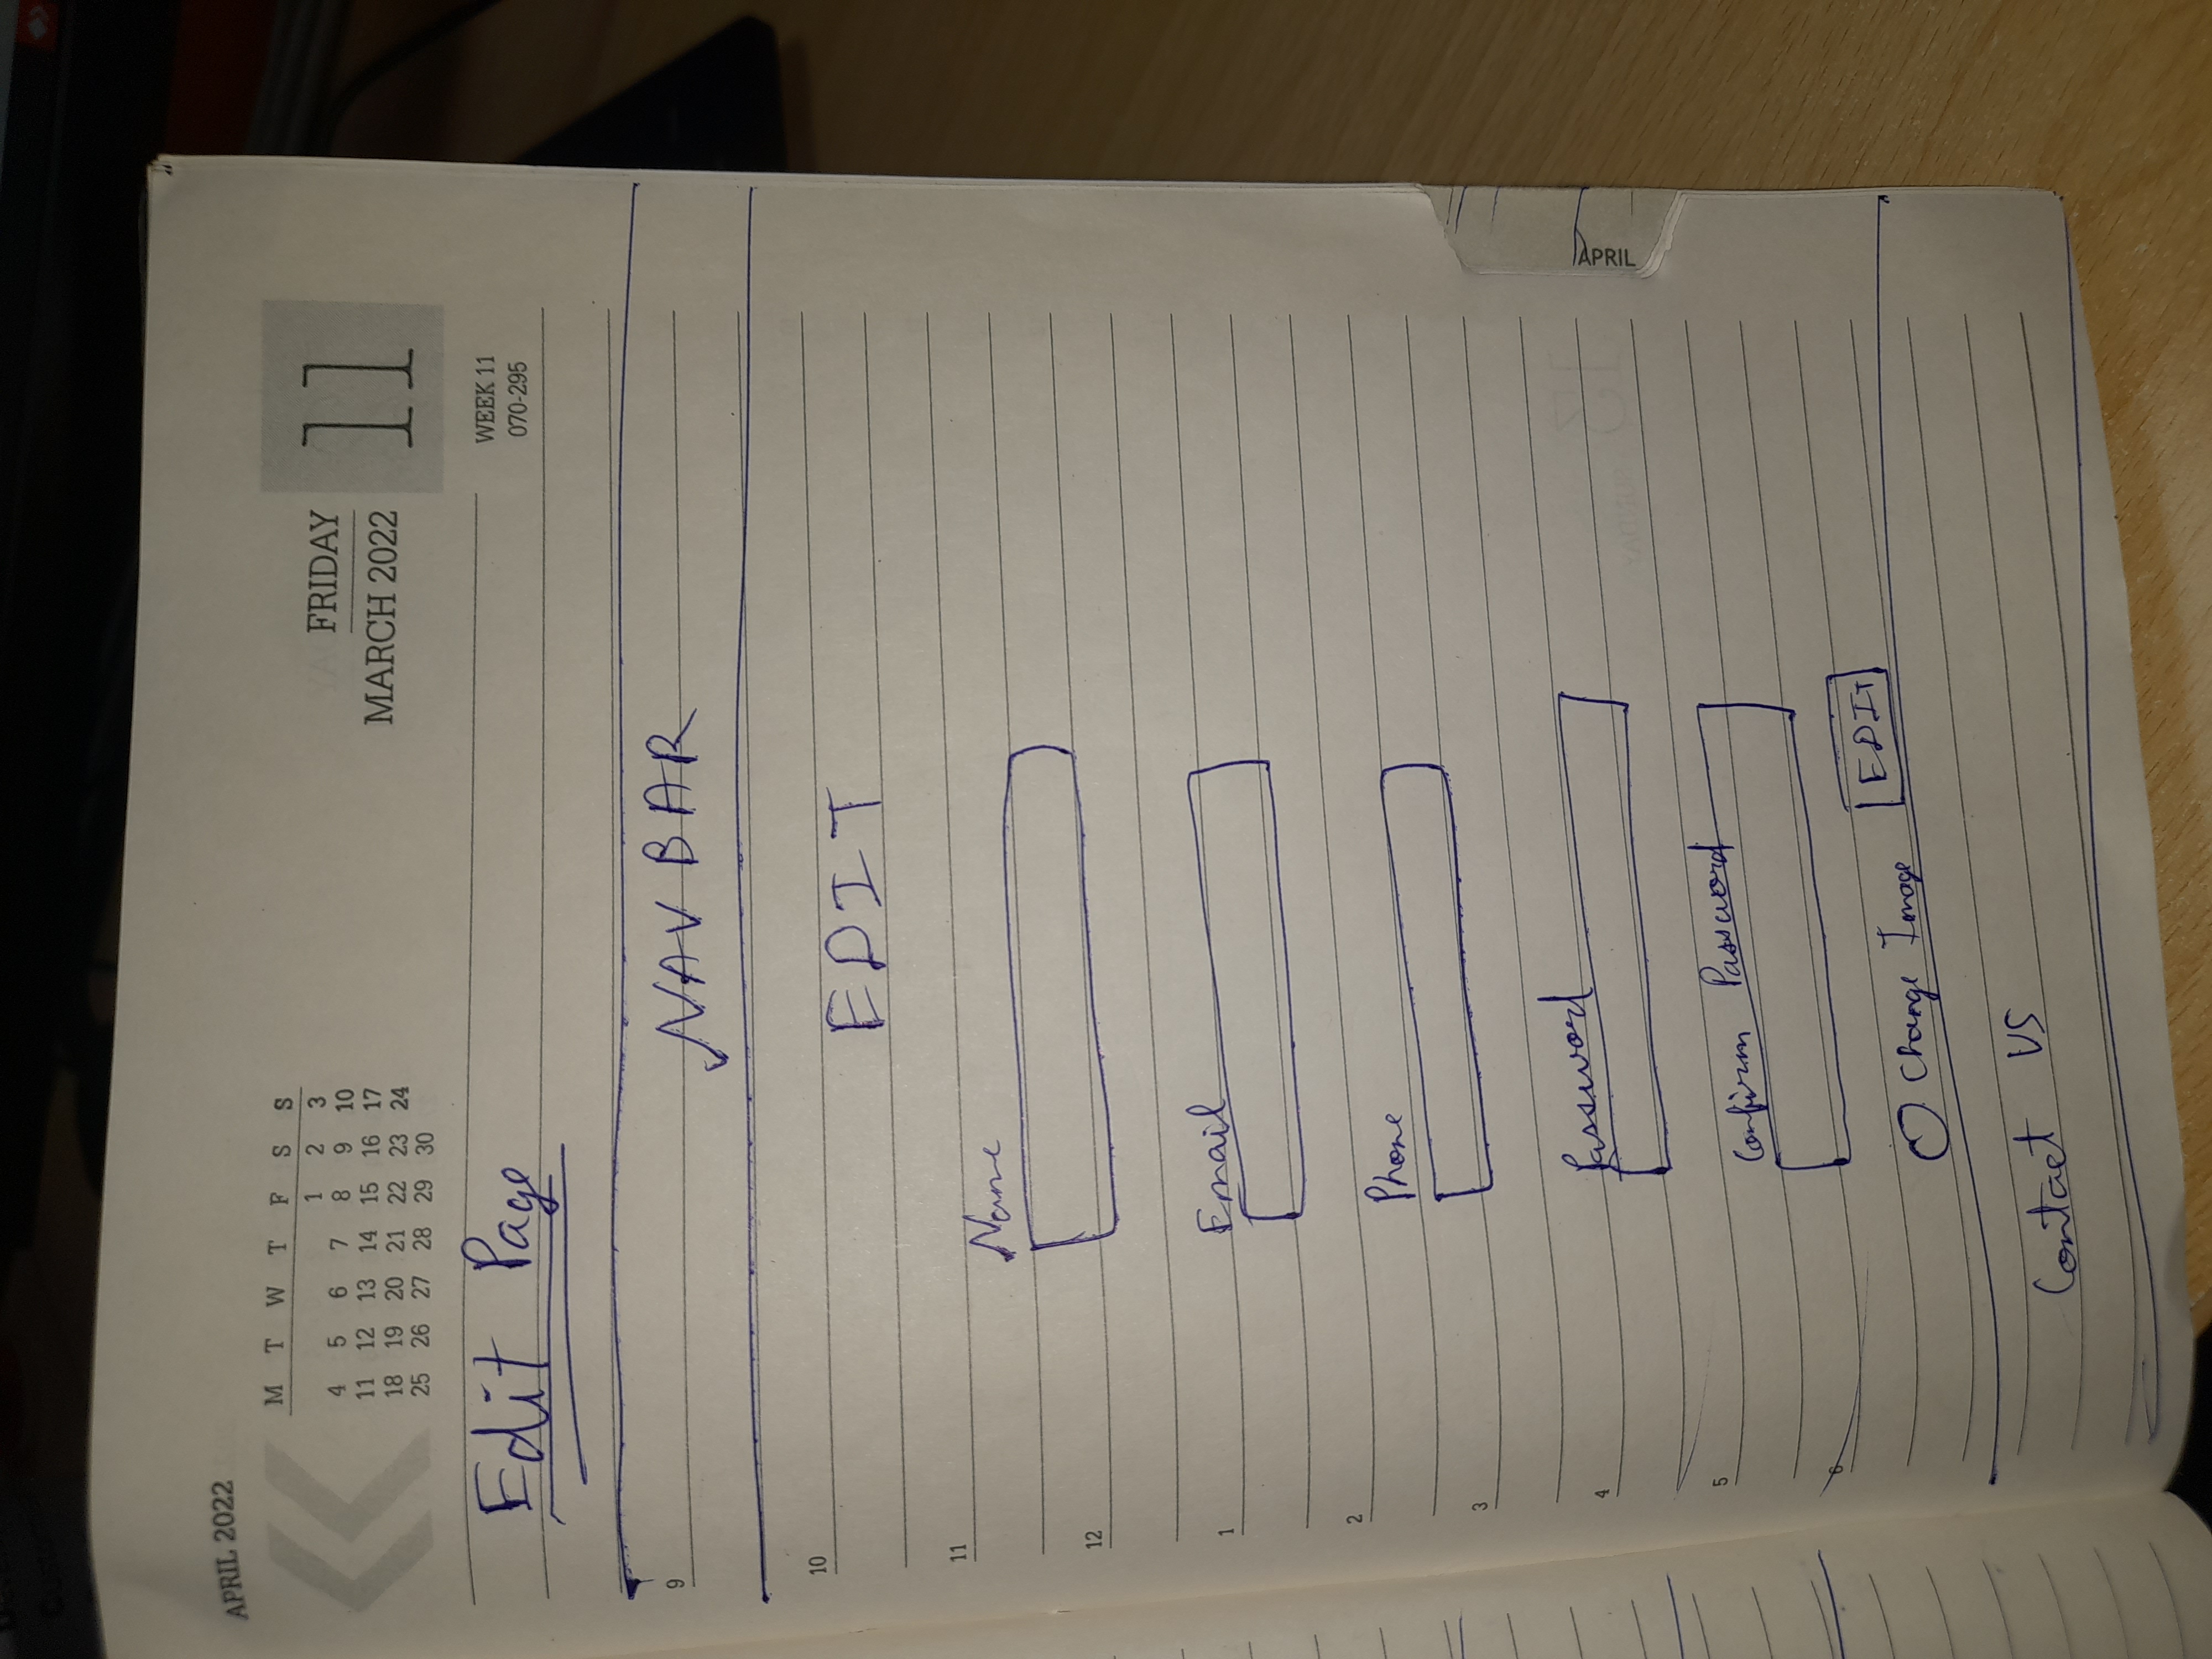 APRIL 2022
M T W T F S S
1 2 3
4 5 6 7 8 9 10
11 12 13 14 15 16 17
18 19 20 21 22 23 24
25 26 27 28 29 30
FRIDAY
MARCH 2022
11
WEEK 11
070-295
Edit Page
9
NAV BAR
10
EDIT
11
Name
12
1
Email
2
Phone
3
Password
4
APRIL
5
Confirm Password
6
Change Image
EDIT
Contact US